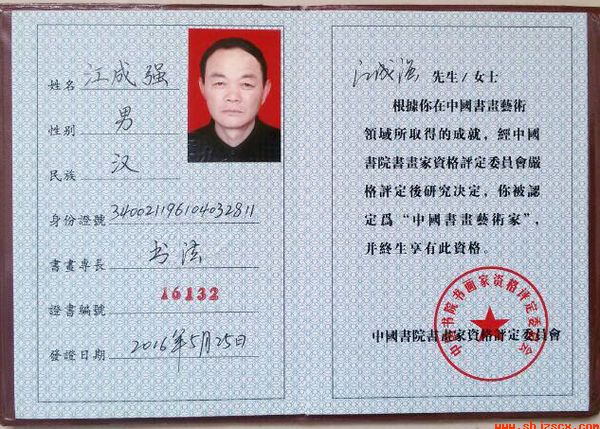 姓名 江成强
性别 男
民族 汉
身份證號 340021196104032811
書畫專長 书法
證書編號 16132
發證日期 2016年5月25日
江成强 先生/女士
根據你在中國書畫藝術
領域所取得的成就，經中國
書院書畫家資格評定委員會嚴
格評定後研究決定，你被認
定爲“中國書畫藝術家”，
并終生享有此資格。
中国书院书画家资格评定委员会
中國書院書畫家資格評定委員會
www.shjzscx.com